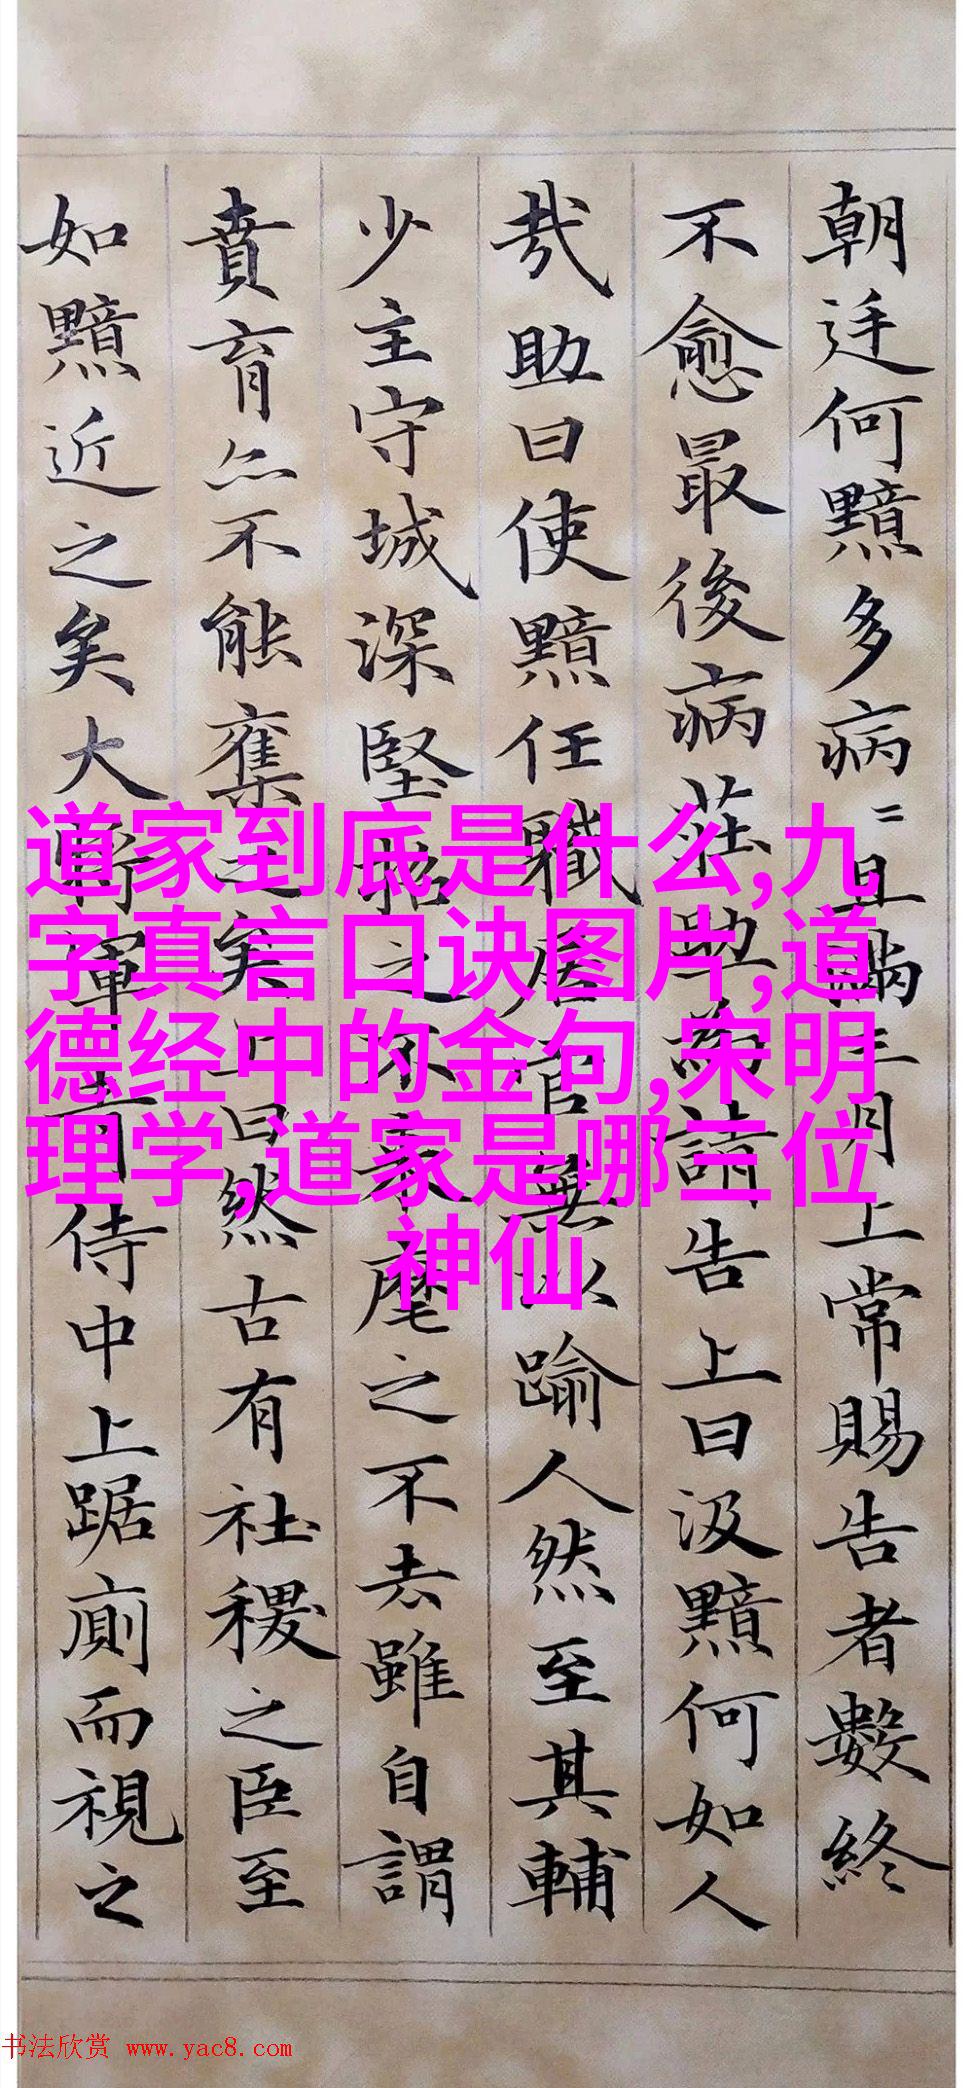 朝廷何黯多病〻且滿三月上常賜告者數終
不愈最後病莊助為請告上曰汲黯何如人
哉助曰使黯任職居官無以踰人然至其輔
少主守城深堅招之不來麾之不去雖自謂
賁育亦不能奪之矣上曰然古有社稷之臣至
如黯近之矣大將軍青侍中上踞廁而視之
道家到底是什么,九
字真言口诀图片,道
德经中的金句,宋明
理学,道家是哪三位
神仙
书法欣赏 www.yac8.com